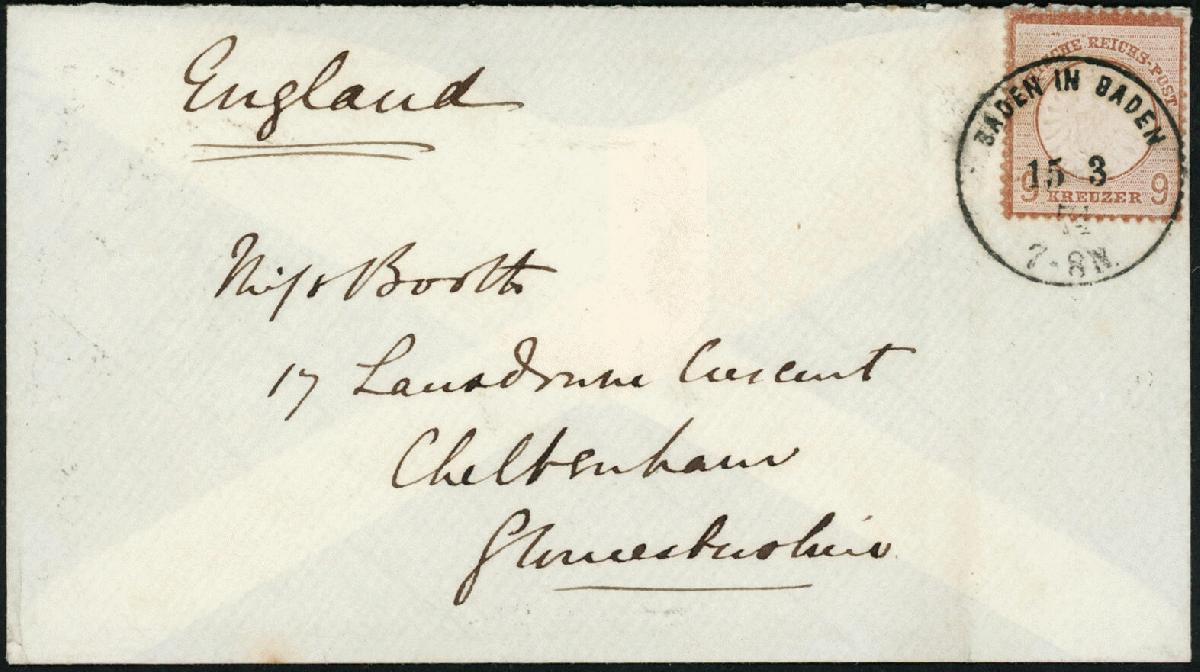 England
DEUTSCHE REICHS-POST
BADEN IN BADEN
15 3
9 KREUZER 9
7-8N.
Miss Booth
17 Lansdowne Crescent
Cheltenham
Gloucestershire